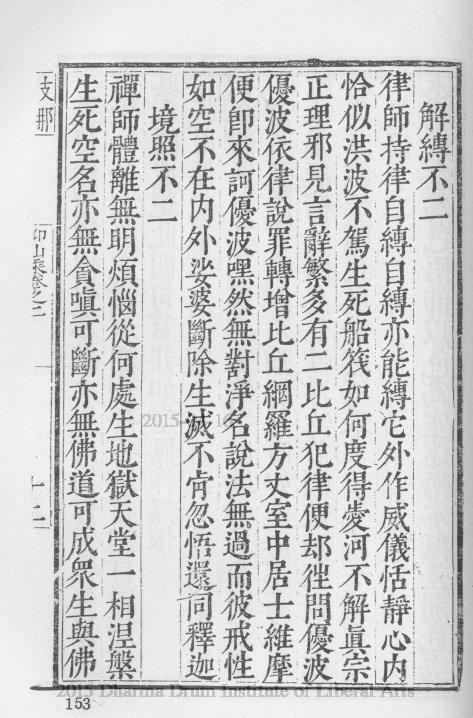 解縛不二
律師持律自縛自縛亦能縛它外作威儀恬靜心內
恰似洪波不駕生死船筏如何度得愛河不解眞宗
正理邪見言辭繁多有二比丘犯律便却徃問優波
優波依律說罪轉增比丘網羅方丈室中居士維摩
便即來訶優波嘿然無對淨名說法無過而彼戒性
如空不在内外娑婆斷除生滅不肯忽悟還同釋迦
境照不二
禪師體離無明煩惱從何處生地獄天堂一相涅槃
生死空名亦無貪嗔可斷亦無佛道可成衆生與佛
支那
十二
2015 Dharma Drum Institute of Liberal Arts
153